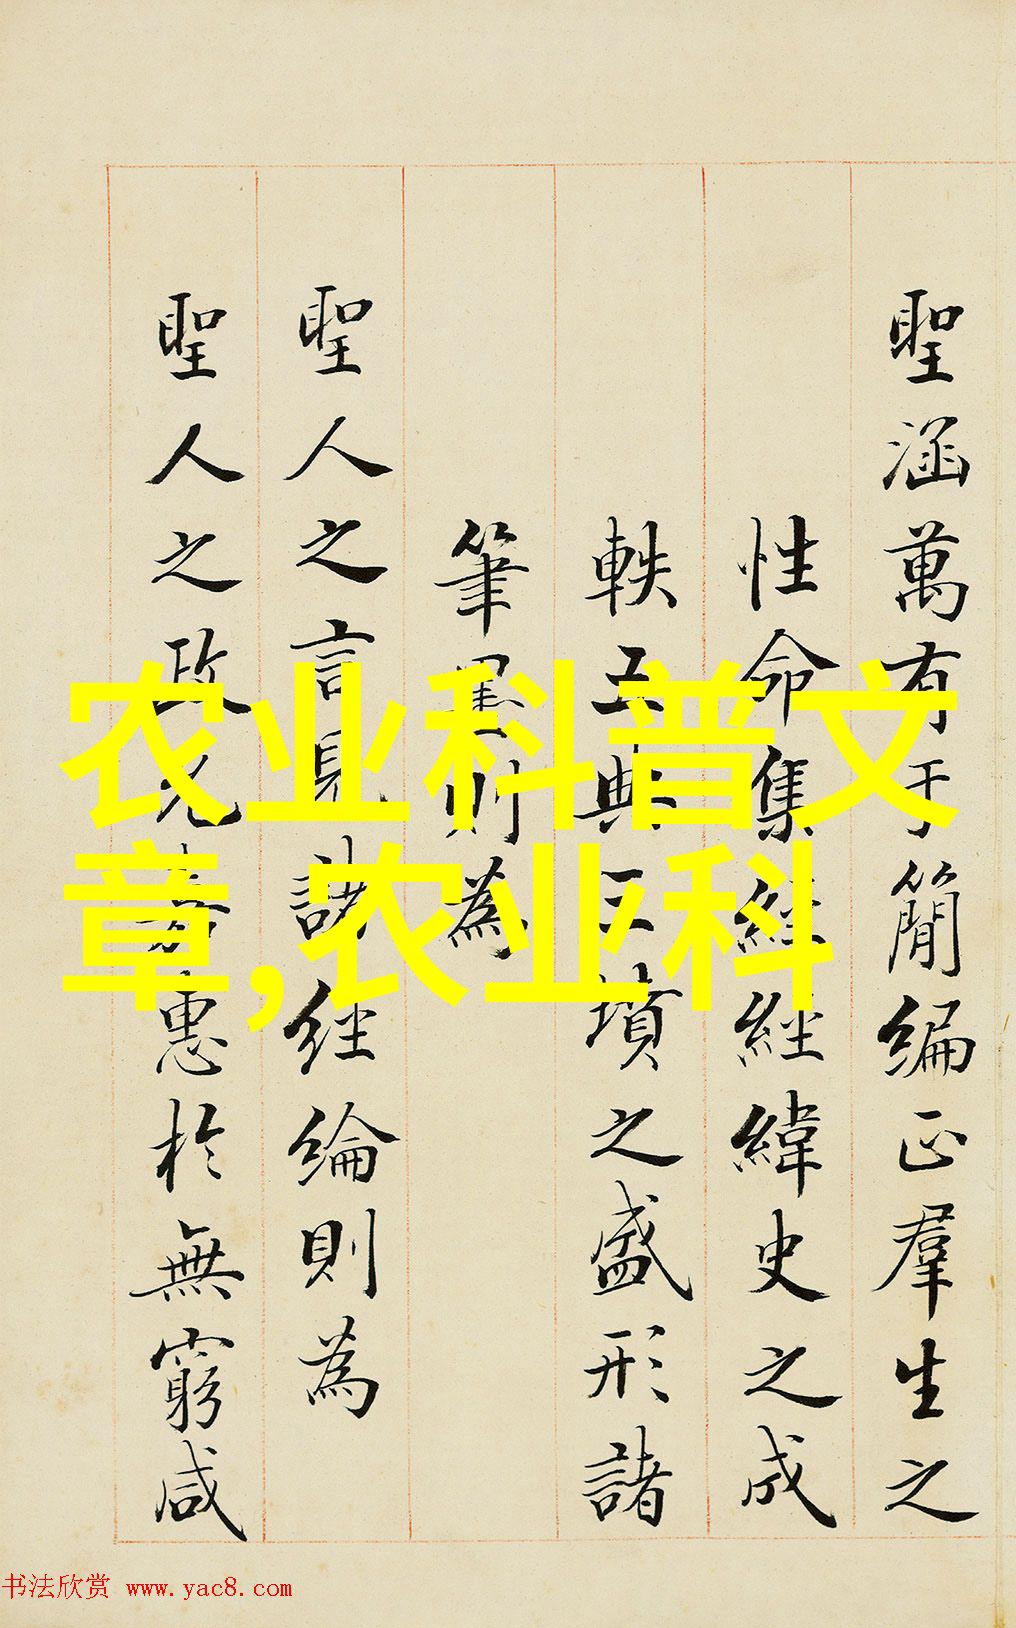 聖涵萬有于簡編正羣生之
性命集經經緯史之成
軼五典三墳之盛形諸
筆墨則為
聖人之言見諸經綸則為
聖人之政九彰惠於無窮咸
农业科普文
章,农业科
书法欣赏 www.yac8.com